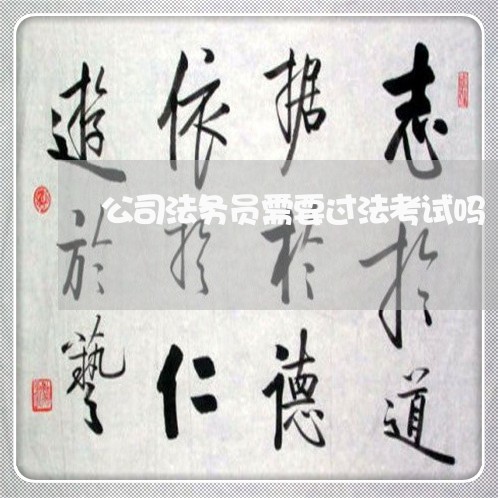 志扵道
据於德
依扵仁
遊於藝
公司法务员需要过法考试吗